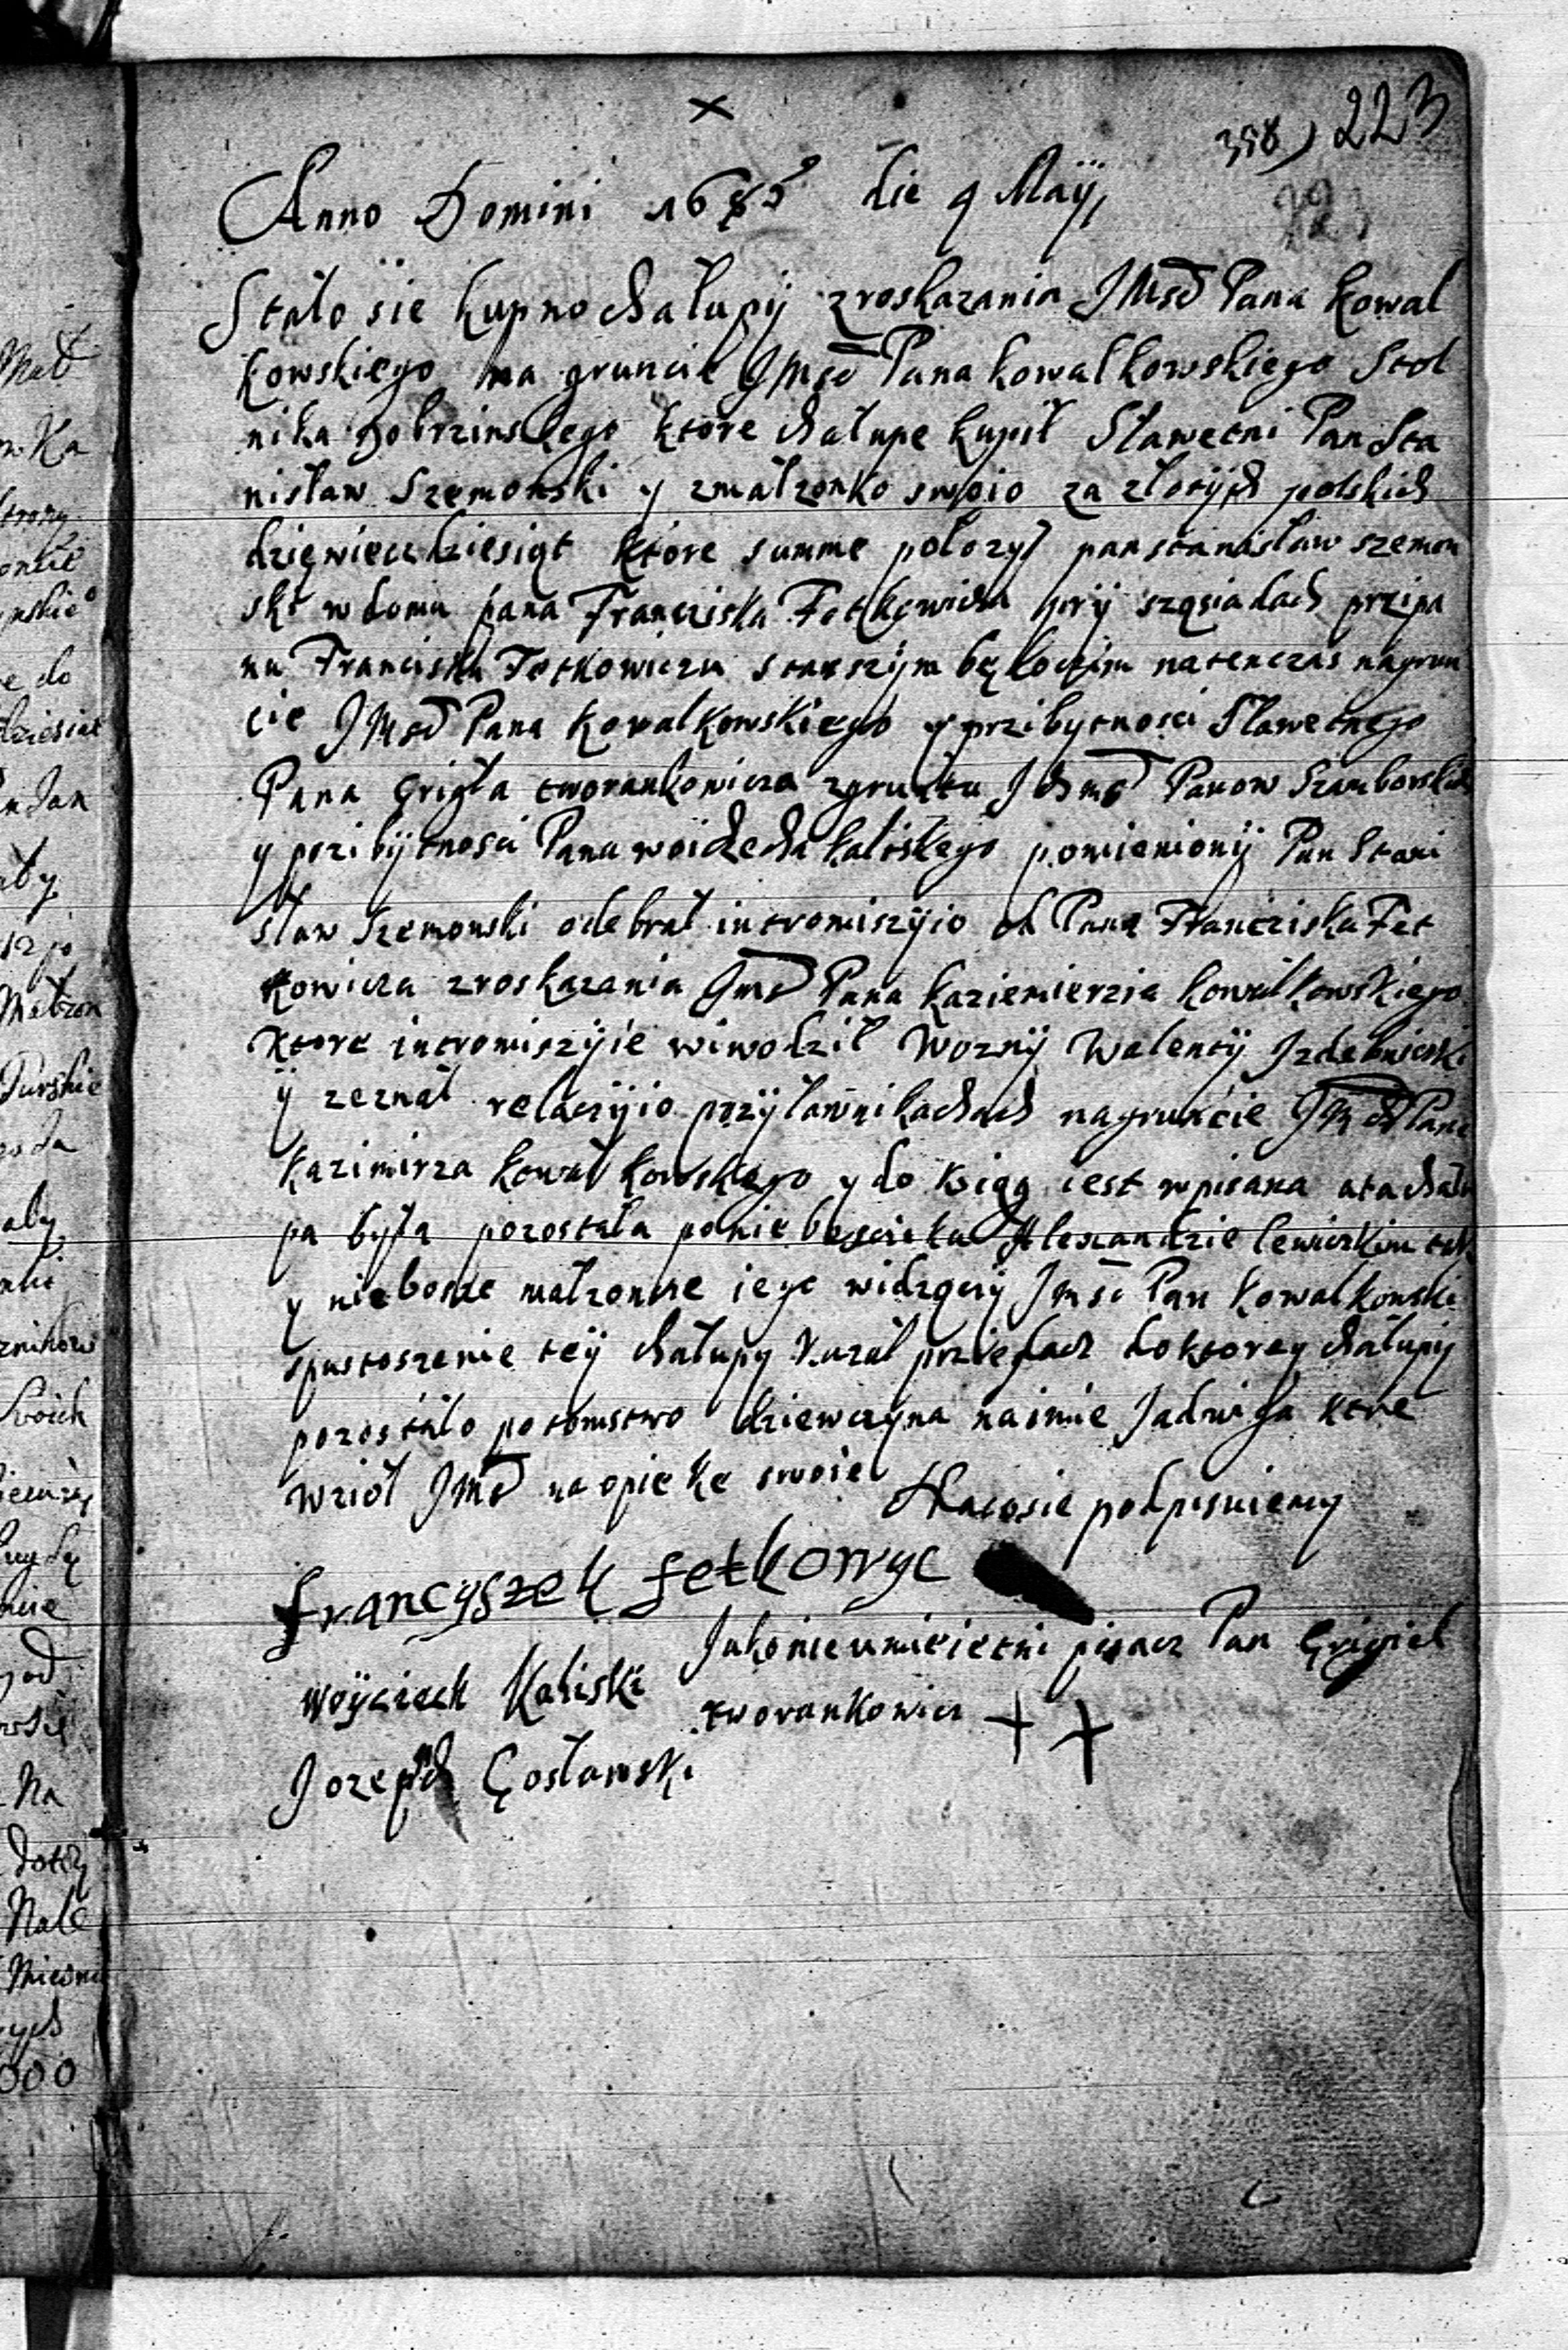 ×
358) 223
Anno Domini 1685 die 9 Maÿ,
Stało sie kupno chałupÿ zroskazania JMsci Pana Kowal
kowskiego na gruncie JMsci Pana kowalkowskiego Stol
nika Dobrzinskego ktore chałupe kupił Sławetni Pan Sta
nisław Szemonski y zmałzonko swoio za złotÿch polskich
dziewiecdziesiąt ktore summe połozył pan stanisław szemon
ski w domu pana Franciszka Fetkowicza przÿ sząsiadach przipa
nu Franciszku Fetkowiczu starszÿm będoczim natenczas nagrun
cie JMsci Pana Kowalkowskiego y przibytnosci Sławetnego
Pana Grigla tworankowicza zgruntu Jchmsc Panow Szamborskich
y przibÿtnosci Pana woiciecha kaliskego pomienionÿ Pan Stani
sław Szemonski odebrał intromiszÿio od Pana Franciszka Fet
kowicza zroskazania Jmsci Pana kaziemierzia kowalkowskiego
ktore intromiszÿie wiwodził Woznÿ Walentÿ Izdebnicski
ÿ zeznał relacÿio przÿławnikachach nagruncie JMsci Pana
Kazimirza kowalkowskego y do ksiąg iest wpisana ata chału
pa była pozostała ponieboscziku Alexandrze lewiczkim tak
y nieboszce małzonce iego widzącÿ Jmsc Pan Kowalkowski
spustoszenie teÿ chałupy kazał przedacz doktorey chałupÿ
pozostało potomstwo dziewczyna naimie Jadwiga ktore
wzioł JMsc na opieke swoie Nacosie podpisuiemy
francyszek fetkowyc
Jakonieumieietni pisacz Pan Grigiel
woÿciech Kaliski
tworankowicz + +
Jozeph Gosławski